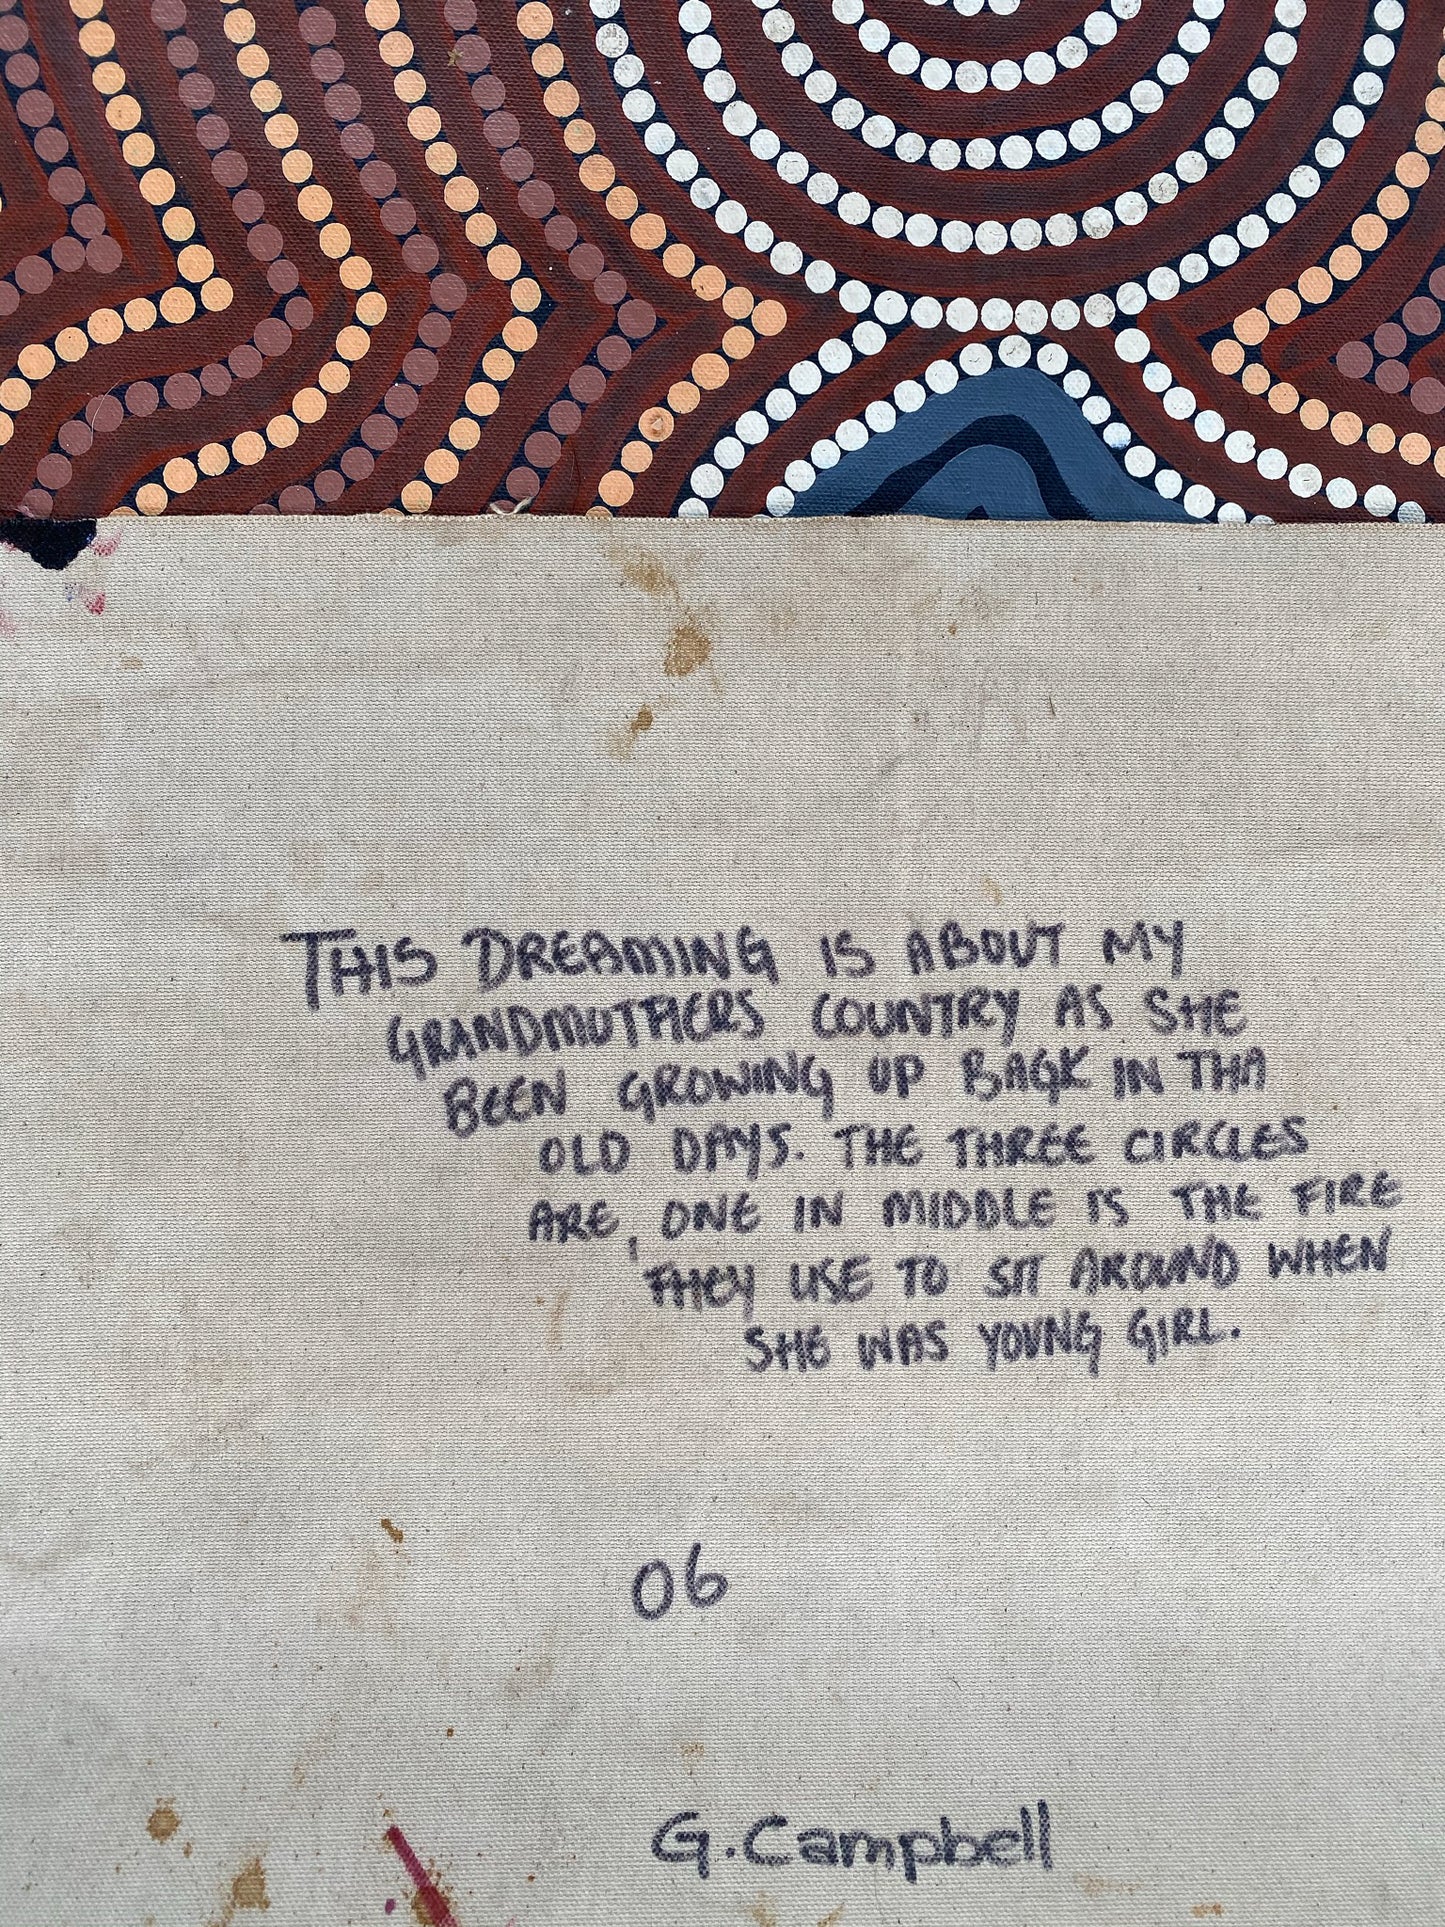 THIS DREAMING IS ABOUT MY
GRANDMUTHERS COUNTRY AS SHE
BEEN GROWING UP BACK IN THA
OLD DAYS. THE THREE CIRCLES
ARE, ONE IN MIDDLE IS THE FIRE
THEY USE TO SIT AROUND WHEN
SHE WAS YOUNG GIRL.
06
G. Campbell